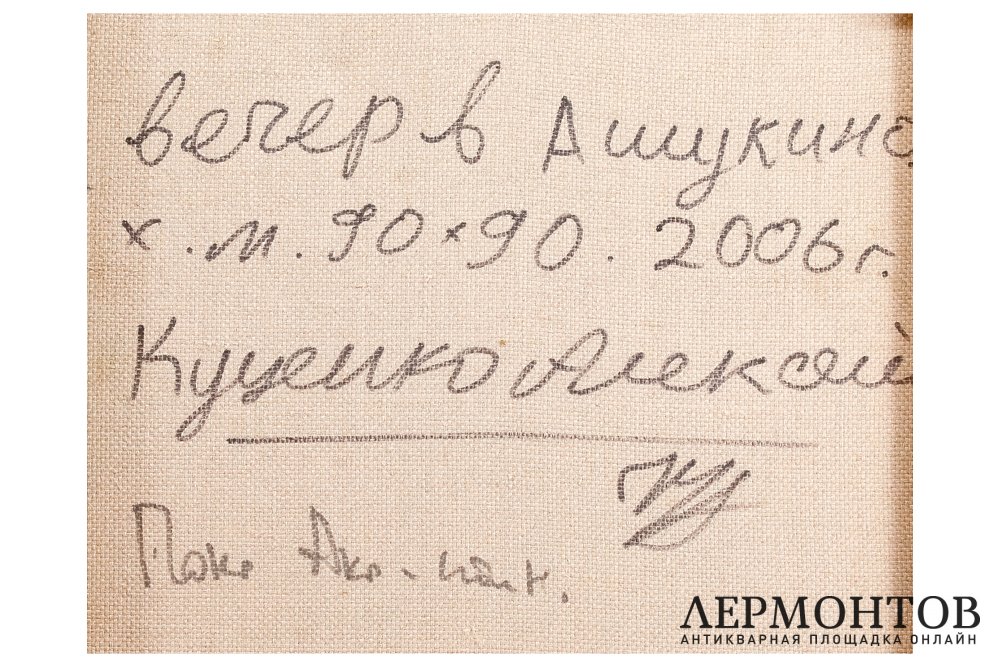 вечер в Ашукино
х.м. 90×90. 2006г.
Куценко Алексей
Покр
ЛЕРМОНТОВ
АНТИКВАРНАЯ ПЛОЩАДКА ОНЛАЙН